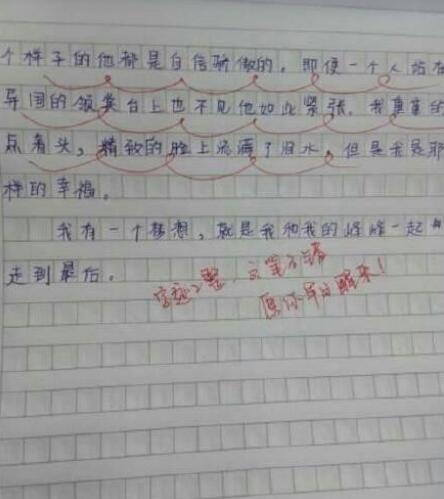 个样子的他都是自信骄傲的。即便一个人站在
异国的领奖台上也不见他如此紧张。我重重的
点着头，精致的脸上流满了泪水，但是我是那
样的幸福。
我有一个梦想，就是我和我的烽烽一起
走到最后。
字迹工整，文笔不错
愿你早日醒来！